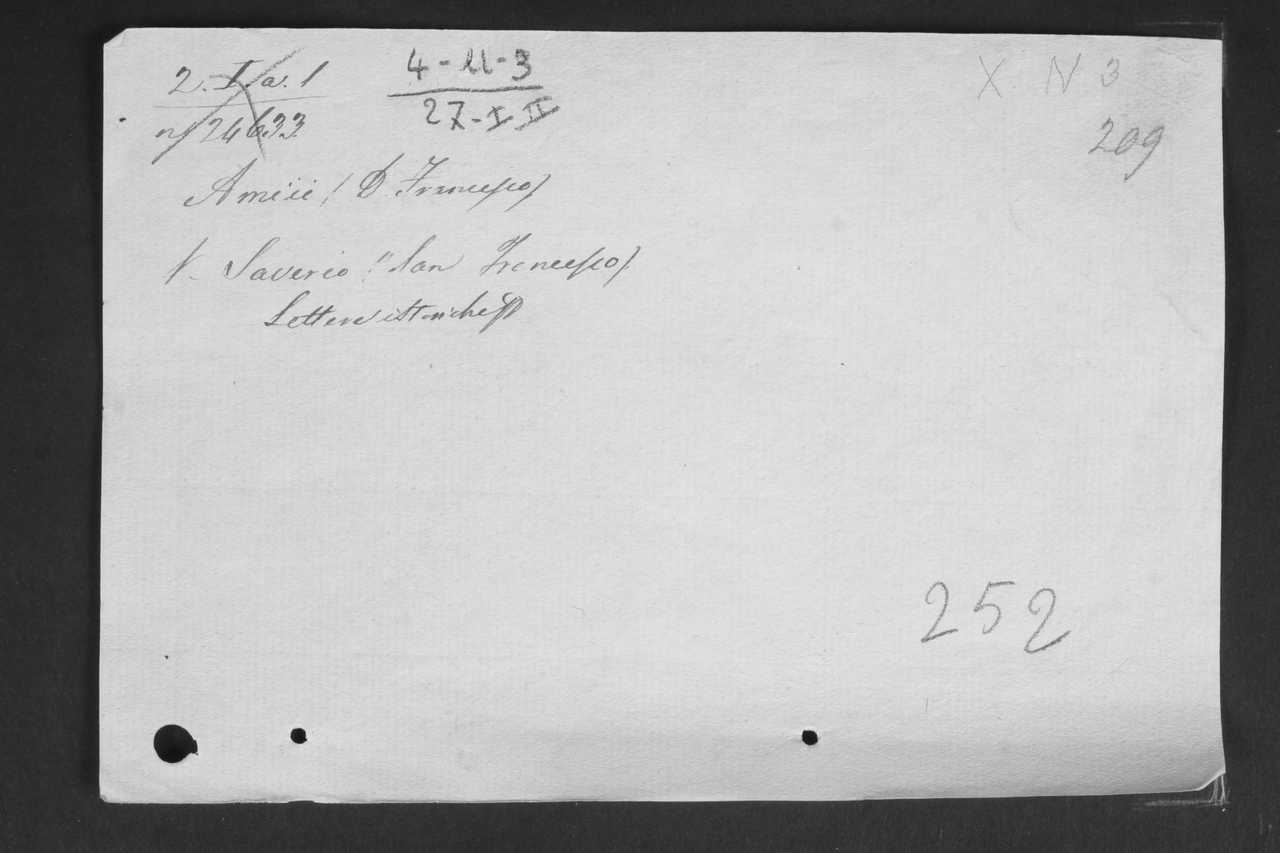 2. I. a. 1
nº 24633
4-11-3
27-I II
X N 3
209
Amici (D. Francesco)
V. Saverio (San Francesco)
Lettere istoriche
252